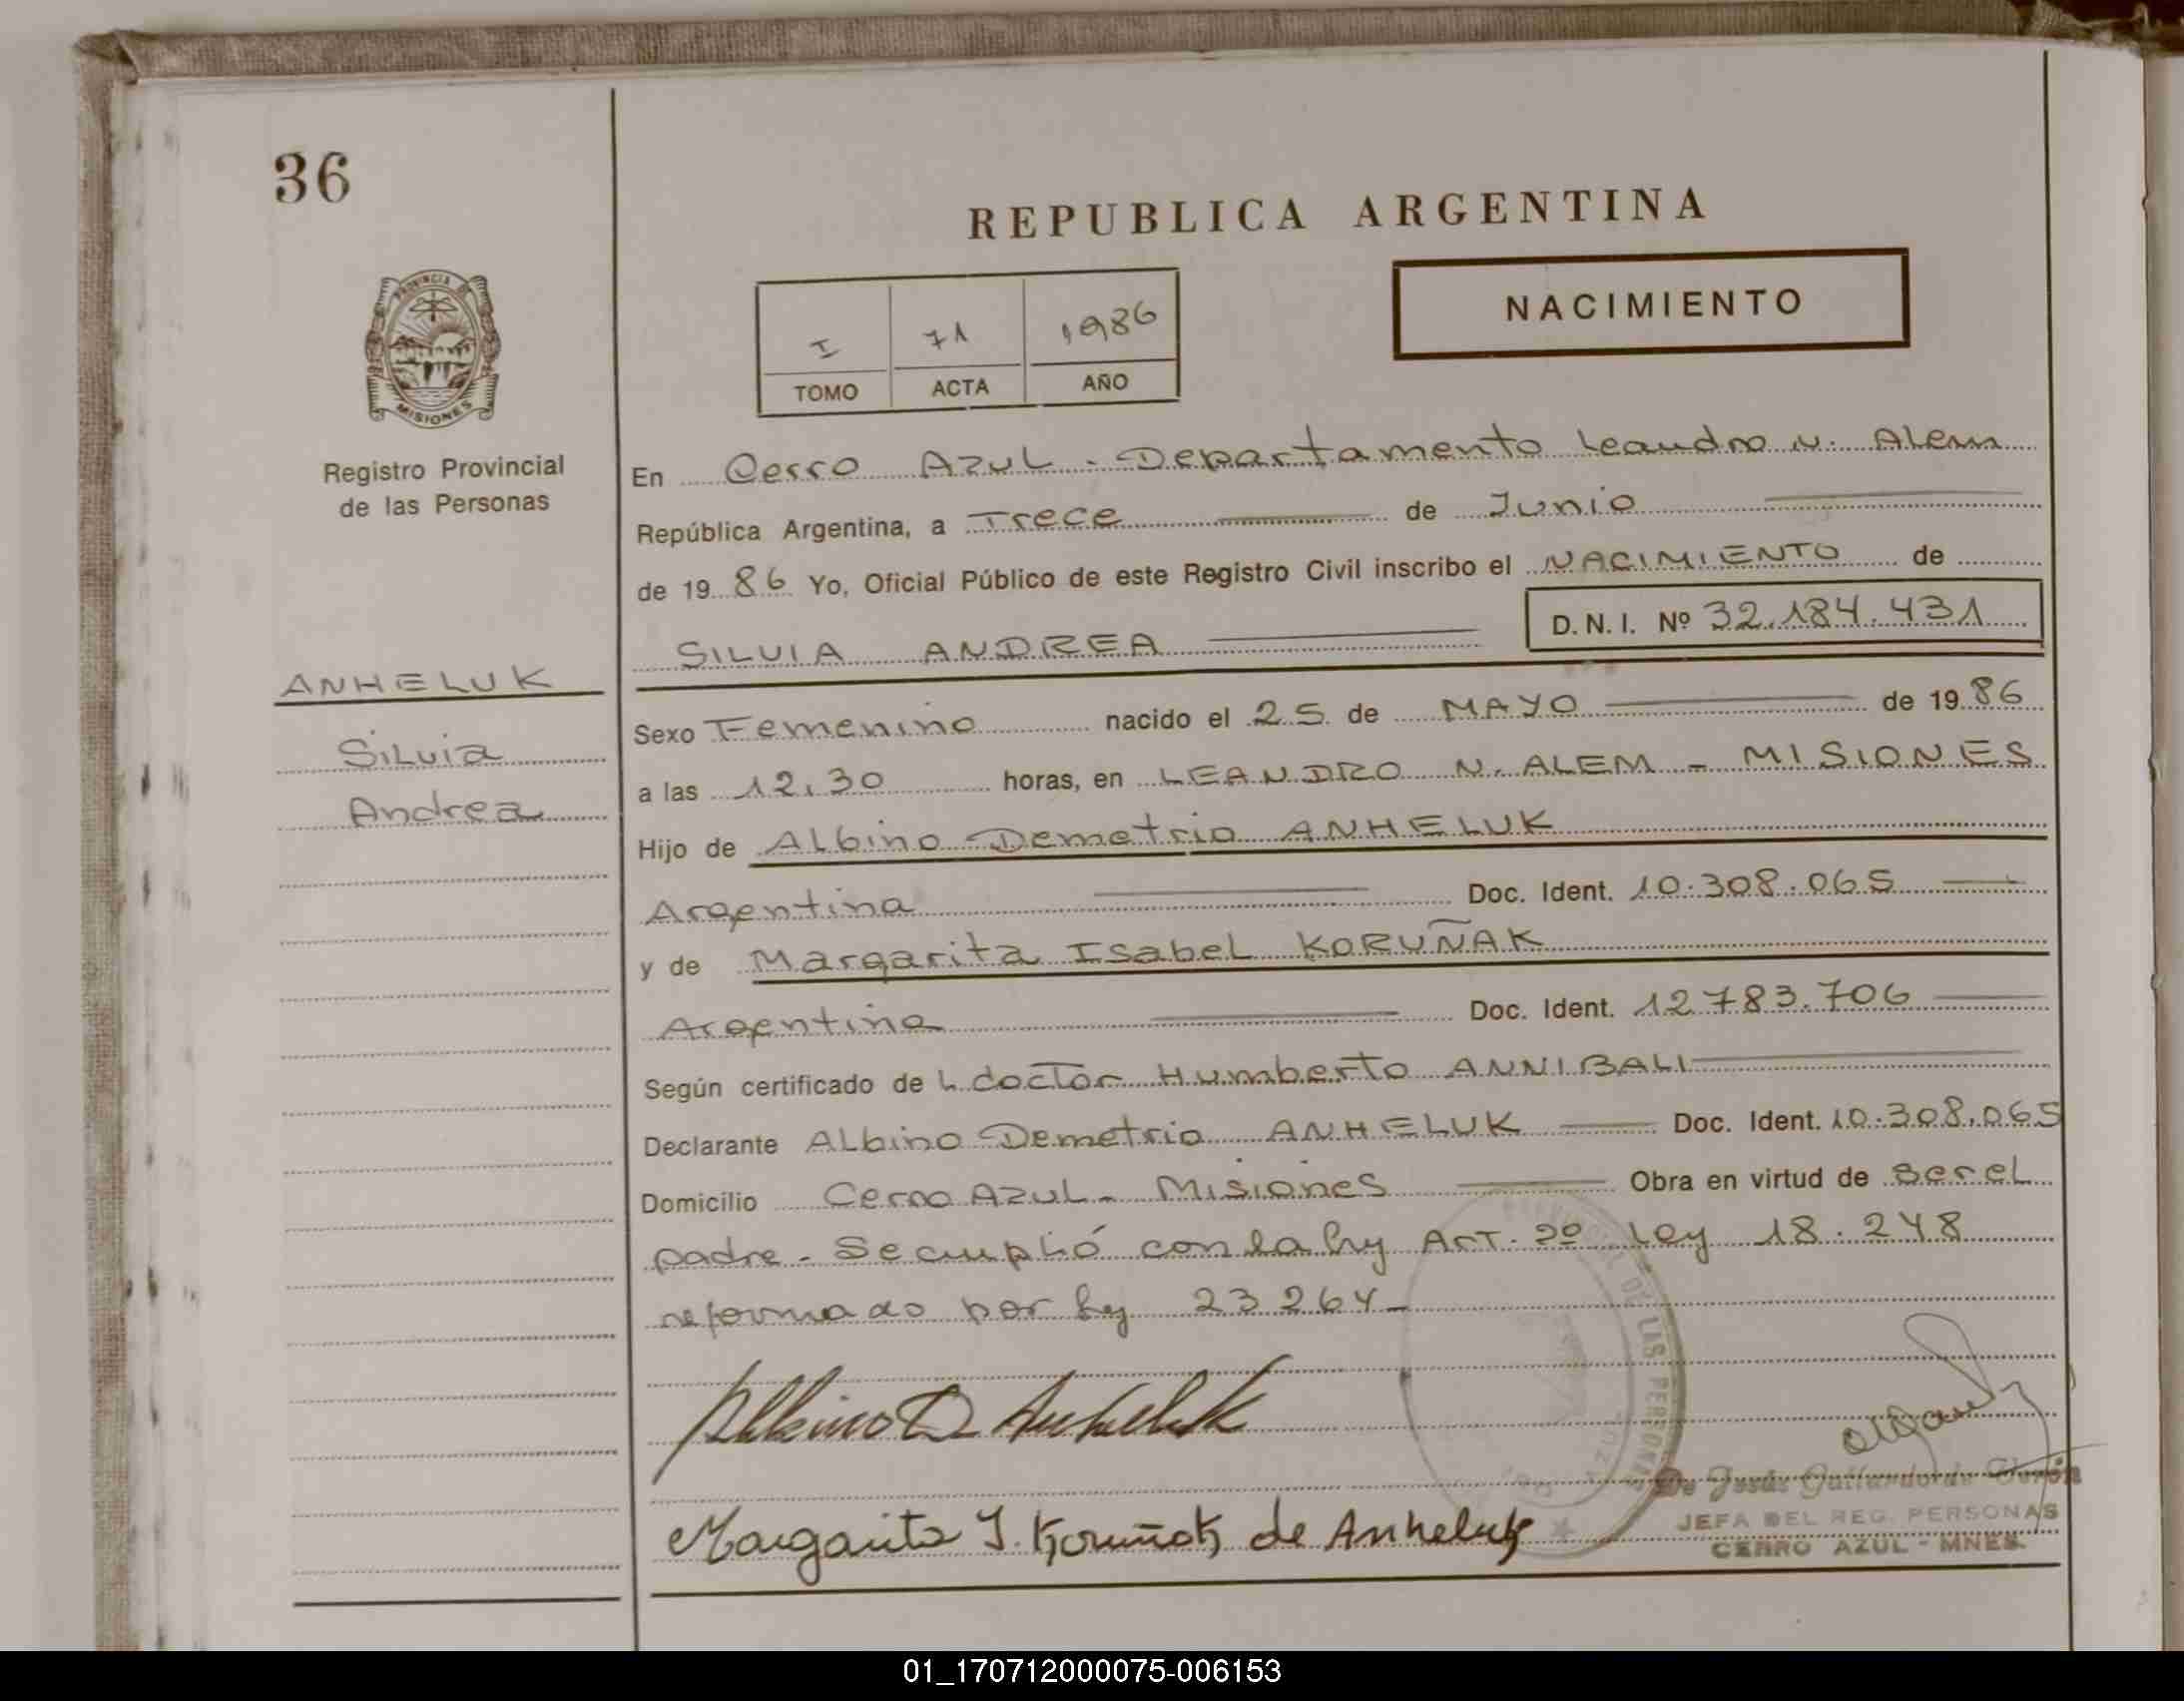 36
REPUBLICA ARGENTINA
PROVINCIA DE
MISIONES
Registro Provincial
de las Personas
I 71 1986
TOMO ACTA AÑO
NACIMIENTO
En Cerro AZUL - Departamento Leandro N. Alem
República Argentina, a Trece de Junio
de 19 86 Yo, Oficial Público de este Registro Civil inscribo el NACIMIENTO de
SILVIA ANDREA D.N.I. Nº 32.184.431
ANHELUK
Silvia
Andrea
Sexo Femenino nacido el 25 de MAYO de 19 86
a las 12,30 horas, en LEANDRO N. ALEM - MISIONES
Hijo de Albino Demetrio ANHELUK
Argentina Doc. Ident. 10.308.065
y de Margarita Isabel KORUÑAK
Argentina Doc. Ident. 12783.706
Según certificado de L doctor Humberto ANNIBALI
Declarante Albino Demetrio ANHELUK Doc. Ident. 10.308.065
Domicilio Cerro Azul - Misiones Obra en virtud de ser el
padre - Se cumplió con la ley Art. 2º Ley 18.248
reformado por ley 23264 -
DE LAS PERSONAS
Albino D Anheluk
Margarita I. Koruñak de Anheluk
JEFA DEL REG. PERSONAS
CERRO AZUL - MNES.
01_170712000075-006153